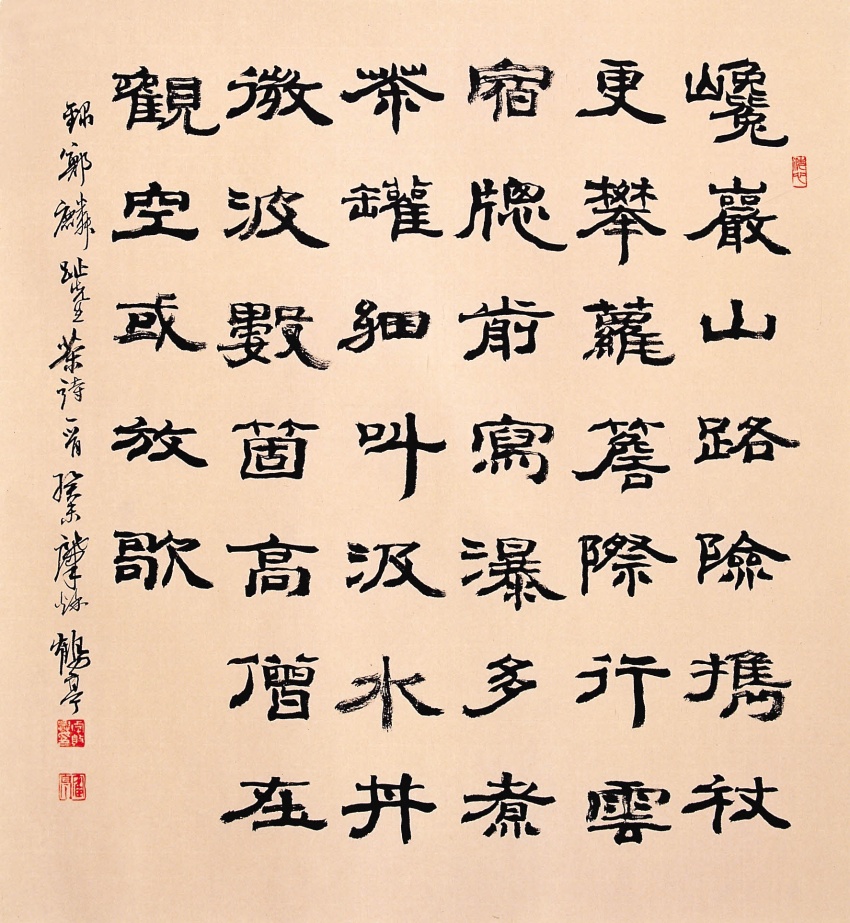 巉巖山路險攜杖
更攀蘿簷際行雲
宿牕前寫瀑多煮
茶罐細叫汲水丼
微波數箇高僧在
觀空或放歌
錄鄭麟趾先生茶詩一首 癸未肇秋 鶴亭